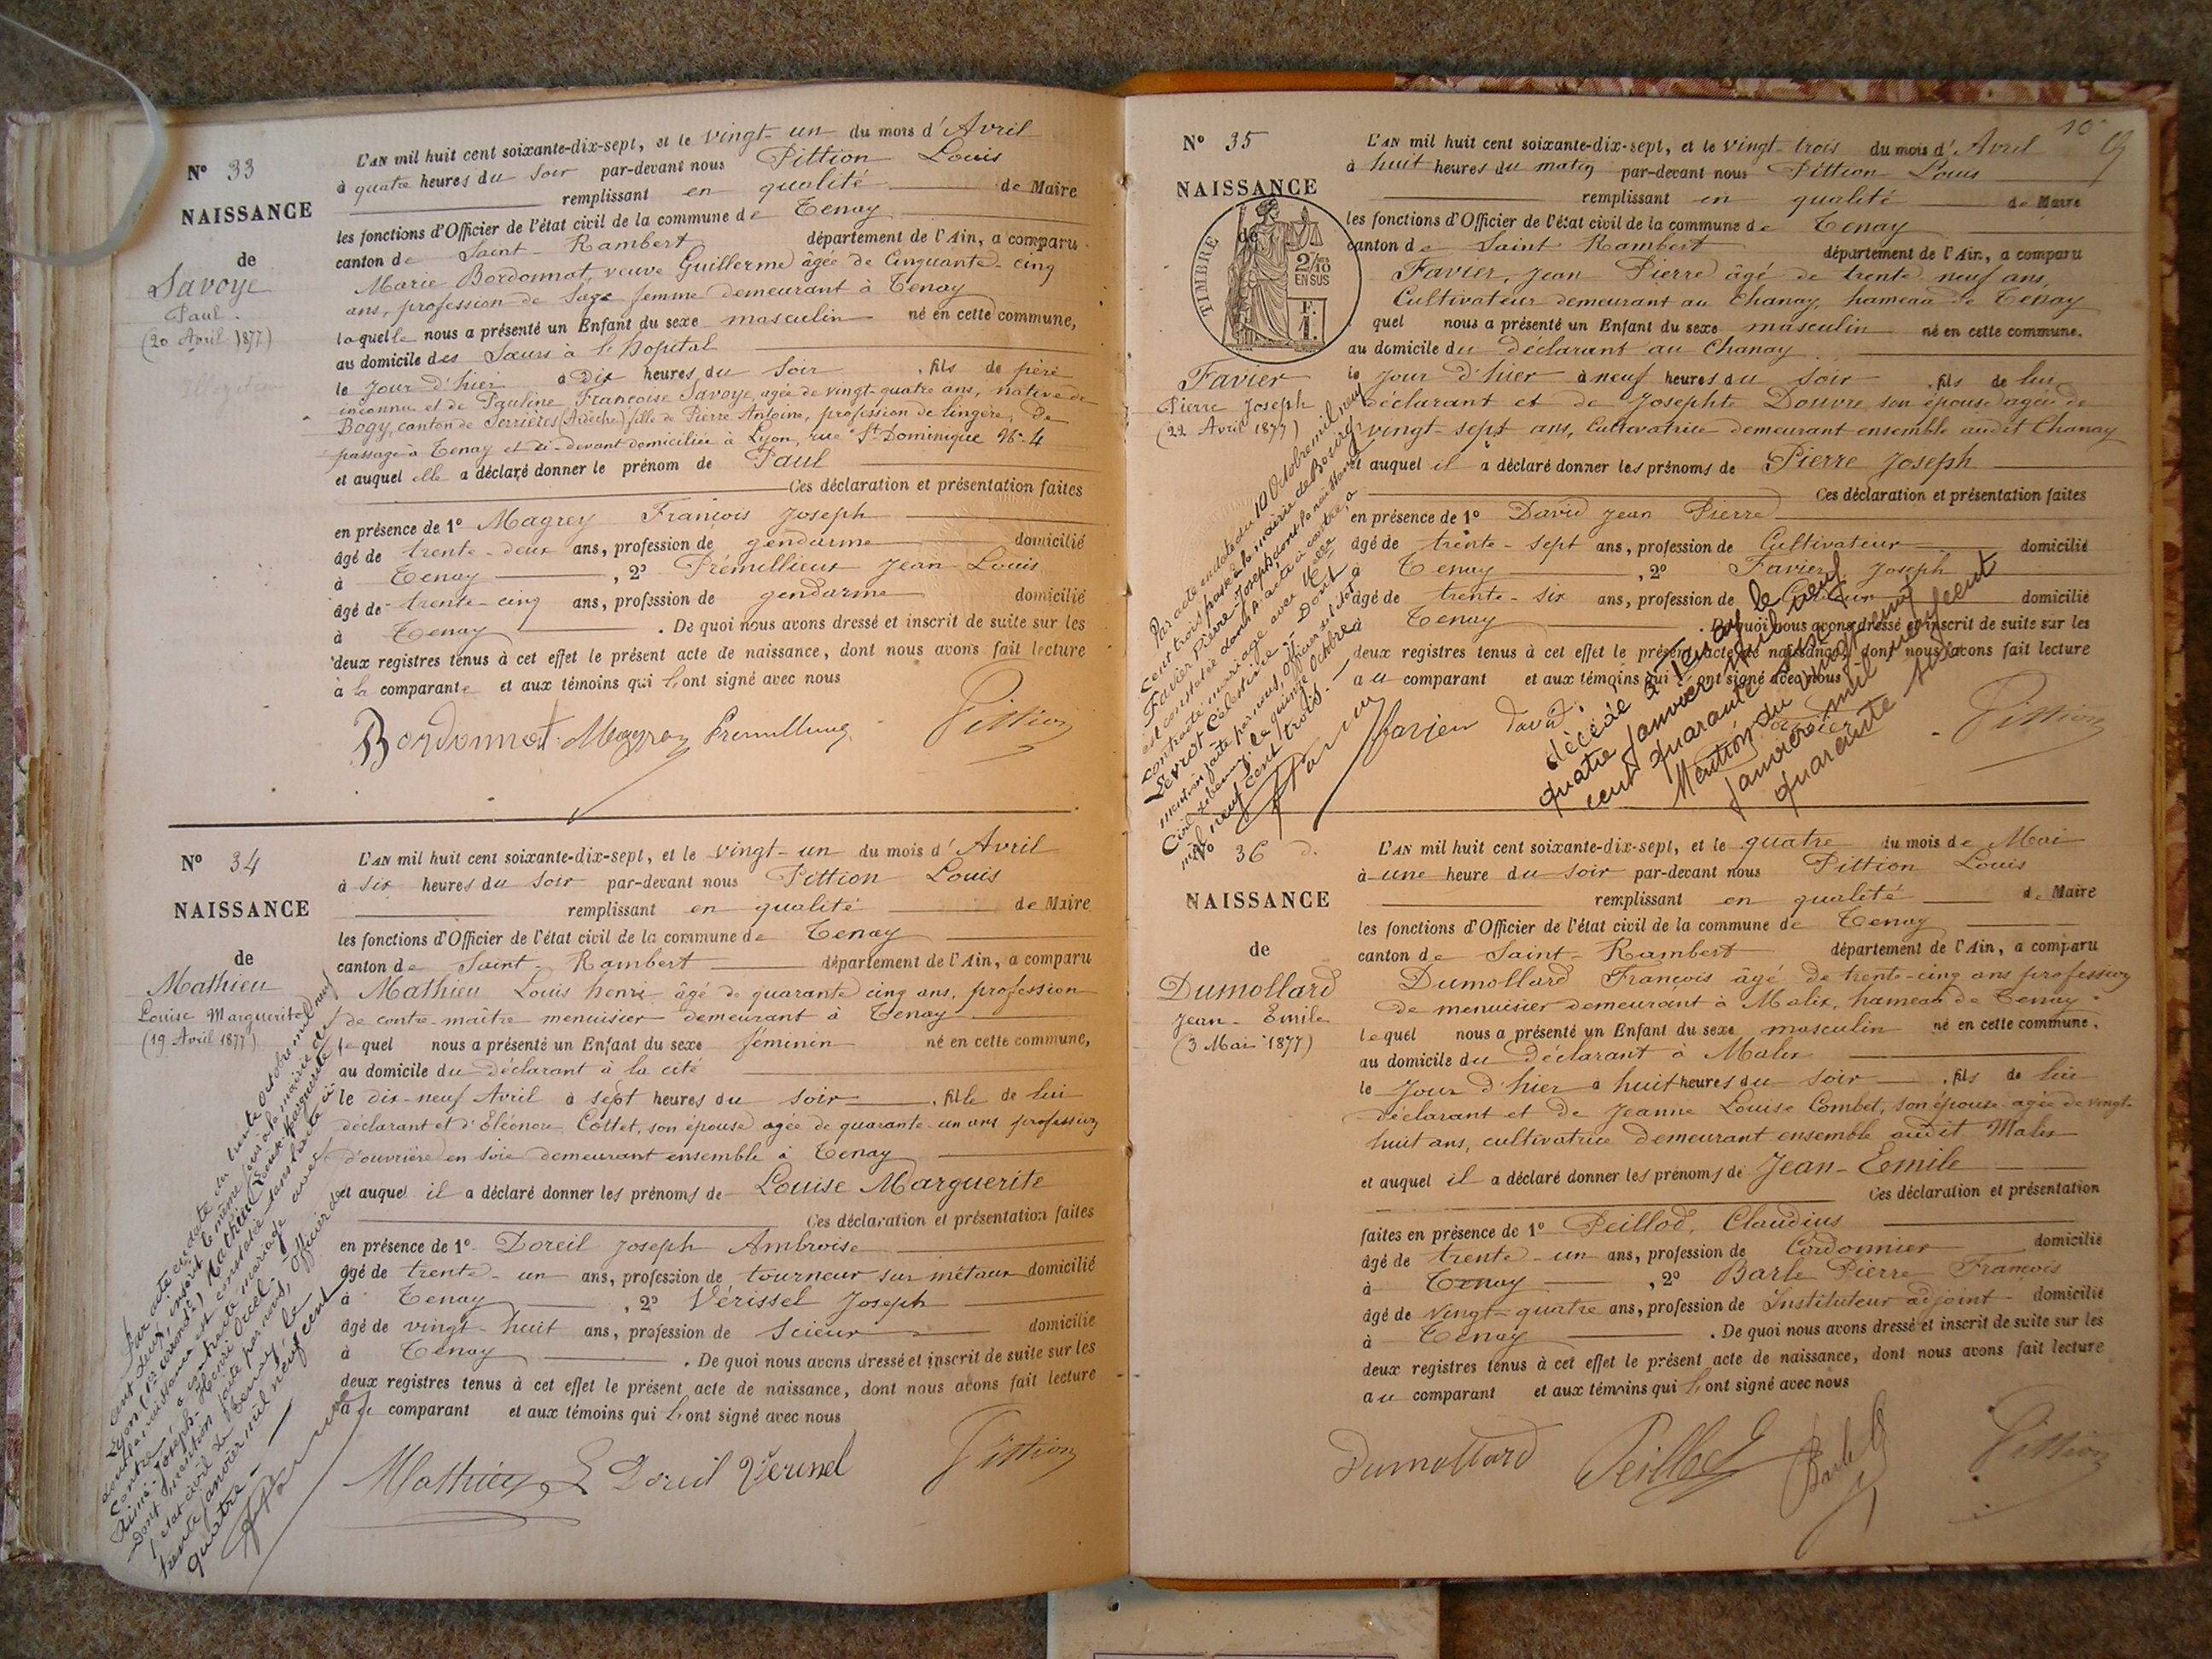 N° 33
NAISSANCE
de
Savoye
Paul.
(20 Avril 1877)
L'AN mil huit cent soixante-dix-sept, et le vingt-un du mois d'Avril
à quatre heures du soir par-devant nous Pittion Louis
remplissant en qualité de Maire
les fonctions d'Officier de l'état civil de la commune de Tenay
canton de Saint-Rambert département de l'Ain, a comparu
Marie Bordonnat, veuve Guillerme âgée de Cinquante-cinq
ans, profession de Sage femme demeurant à Tenay
laquelle nous a présenté un Enfant du sexe masculin né en cette commune,
au domicile des Sœurs à l'hopital
le jour d'hier à Dix heures du soir, fils de père
inconnu et de Pauline Françoise Savoye, agée de vingt-quatre ans, native de
Bogy, canton de Serrières (Ardèche) fille de Pierre Antoine, profession de lingère, de
passage à Tenay et ci-devant domiciliée à Lyon, rue St Dominique N° 4
et auquel elle a déclaré donner le prénom de Paul
Ces déclaration et présentation faites
en présence de 1° Magrey François Joseph
âgé de trente-deux ans, profession de gendarme domicilié
à Tenay, 2° Prémillieux Jean Louis
âgé de trente-cinq ans, profession de gendarme domicilié
à Tenay. De quoi nous avons dressé et inscrit de suite sur les
deux registres tenus à cet effet le présent acte de naissance, dont nous avons fait lecture
à la comparante et aux témoins qui l'ont signé avec nous
Bordonnat Magrey Premillieux Pittion
N° 34
NAISSANCE
de
Mathieu
Louise Marguerite
(19 Avril 1877)
L'AN mil huit cent soixante-dix-sept, et le vingt-un du mois d'Avril
à six heures du soir par-devant nous Pittion Louis
remplissant en qualité de Maire
les fonctions d'Officier de l'état civil de la commune de Tenay
canton de Saint-Rambert département de l'Ain, a comparu
Mathieu Louis henri âgé de quarante cinq ans, profession
de contre-maître menuisier demeurant à Tenay
lequel nous a présenté un Enfant du sexe féminin né en cette commune,
au domicile du déclarant à la cité
le dix-neuf Avril à sept heures du soir, fille de lui
déclarant et d'Eléonore Cottet, son épouse agée de quarante-un ans profession
d'ouvrière en soie demeurant ensemble à Tenay
et auquel il a déclaré donner les prénoms de Louise Marguerite
Ces déclaration et présentation faites
en présence de 1° Doreil Joseph Ambroise
âgé de trente-un ans, profession de tourneur sur métaux domicilié
à Tenay, 2° Vérissel Joseph
âgé de vingt-huit ans, profession de Scieur domicilié
à Tenay. De quoi nous avons dressé et inscrit de suite sur les
deux registres tenus à cet effet le présent acte de naissance, dont nous avons fait lecture
au comparant et aux témoins qui l'ont signé avec nous
Mathieu L Doreil Verissel Pittion
Par acte en date du trente octobre mil neuf
cent deux, inscrit le même jour à la mairie de
Lyon (1er arrondt), Mathieu Louise Marguerite
dont la naissance est constatée dans l'acte ci-
contre, a contracté mariage avec
Aimé-Joseph-Henri Orcel.
Dont mention faite par nous, Officier de
l'état-civil de Tenay, le
trente janvier mil neuf cent
quatre.
10
N° 35
NAISSANCE
de
TIMBRE
2/10
EN SUS
F.
1.
Favier
Pierre Joseph
(22 Avril 1877)
L'AN mil huit cent soixante-dix-sept, et le vingt-trois du mois d'Avril
à huit heures du matin par-devant nous Pittion Louis
remplissant en qualité de Maire
les fonctions d'Officier de l'état civil de la commune de Tenay
canton de Saint Rambert département de l'Ain, a comparu
Favier, Jean Pierre âgé de trente neuf ans,
Cultivateur demeurant au Chanay, hameau de Tenay
quel nous a présenté un Enfant du sexe masculin né en cette commune.
au domicile du déclarant au Chanay
le jour d'hier à neuf heures du soir, fils de lui
déclarant et de Josephte Douvre son épouse agée de
vingt-sept ans, Cultivatrice demeurant ensemble audit Chanay
et auquel il a déclaré donner les prénoms de Pierre Joseph
Ces déclaration et présentation faites
en présence de 1° David Jean Pierre
âgé de trente-sept ans, profession de Cultivateur domicilié
à Tenay, 2° Favier Joseph
âgé de trente-six ans, profession de domicilié
à Tenay. De quoi nous avons dressé et inscrit de suite sur les
deux registres tenus à cet effet le présent acte de naissance, dont nous avons fait lecture
au comparant et aux témoins qui l'ont signé avec nous
favier David favier Pittion
Par acte en date du 10 Octobre mil neuf
cent trois passé à la mairie de
Favier Pierre Joseph, dont la naissance
est constatée dans l'acte ci-contre, a
contracté mariage avec Melle
Levrot Célestine. Dont
mention faite par nous, Officier de l'état
Civil de Tenay, le quinze Octobre
mil neuf cent trois.
décédé à Tenay le
quatre janvier mil neuf
cent quarante six
Mention du vingt neuf
janvier mil neuf cent
quarante six
N° 36
NAISSANCE
de
Dumollard
Jean-Emile
(3 Mai 1877)
L'AN mil huit cent soixante-dix-sept, et le quatre du mois de Mai
à une heure du soir par-devant nous Pittion Louis
remplissant en qualité de Maire
les fonctions d'Officier de l'état civil de la commune de Tenay
canton de Saint-Rambert département de l'Ain, a comparu
Dumollard François âgé de trente-cinq ans profession
de menuisier demeurant à Malix, hameau de Tenay
lequel nous a présenté un Enfant du sexe masculin né en cette commune.
au domicile du Déclarant à Malix
le jour d'hier à huit heures du soir, fils de lui
déclarant et de Jeanne Louise Combet, son épouse agée de vingt-
huit ans, cultivatrice demeurant ensemble audit Malix
et auquel il a déclaré donner les prénoms de Jean-Emile
Ces déclaration et présentation
faites en présence de 1° Peillod, Claudius
âgé de trente-un ans, profession de Cordonnier domicilié
à Tenay, 2° Barle Pierre François
âgé de vingt-quatre ans, profession de Instituteur adjoint domicilié
à Tenay. De quoi nous avons dressé et inscrit de suite sur les
deux registres tenus à cet effet le présent acte de naissance, dont nous avons fait lecture
au comparant et aux témoins qui l'ont signé avec nous
Dumollard Peillod Barle Pittion